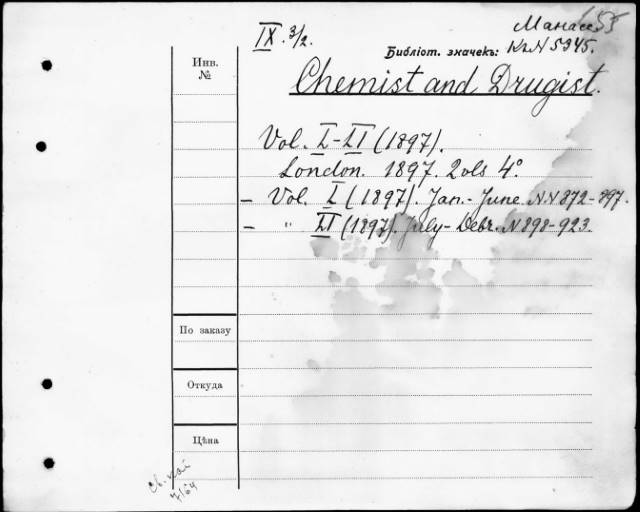 IX. 3/2.
Манас. 55
Библіот. значекъ: Кл N 5345.
Инв. №
Chemist and Drugist.
Vol. L-LI (1897).
London. 1897. 2 vols 4°.
– Vol. L (1897). Jan.- June. NN 872-897.
– " LI (1897). July- Debr. N 898-923.
По заказу
Откуда
Цѣна
Св. кай
7/64